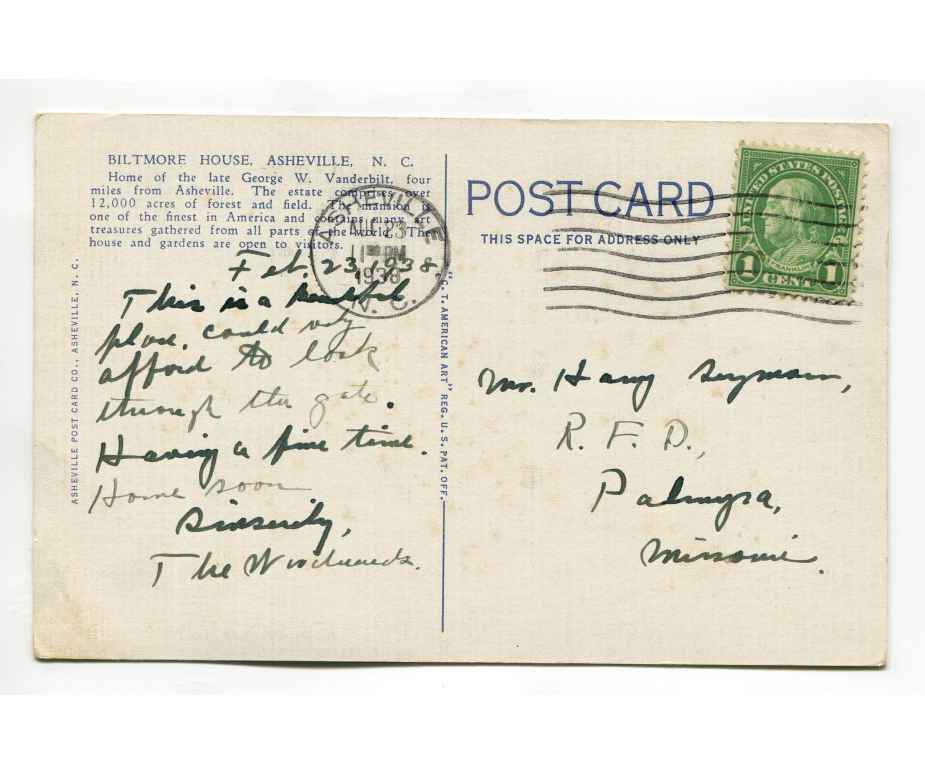 BILTMORE HOUSE, ASHEVILLE, N. C.
Home of the late George W. Vanderbilt, four
miles from Asheville. The estate comprises over
12,000 acres of forest and field. The mansion
one of the finest in America and contains many art
treasures gathered from all parts of the world. The
house and gardens are open to visitors.
Feb. 23, 1938.
This is a beautiful
place. could only
afford to look
through the gate.
Having a fine time.
Home soon
Sincerely,
The Woodwards.
ASHEVILLE POST CARD CO., ASHEVILLE, N. C.
"C. T. AMERICAN ART" REG. U. S. PAT. OFF.
ASHEVILLE
23
PM
1938
N. C.
POST CARD
THIS SPACE FOR ADDRESS ONLY
UNITED STATES POSTAGE
FRANKLIN
1 CENT 1
Mr. Harry Seymour,
R. F. D.,
Palmyra,
Missouri.